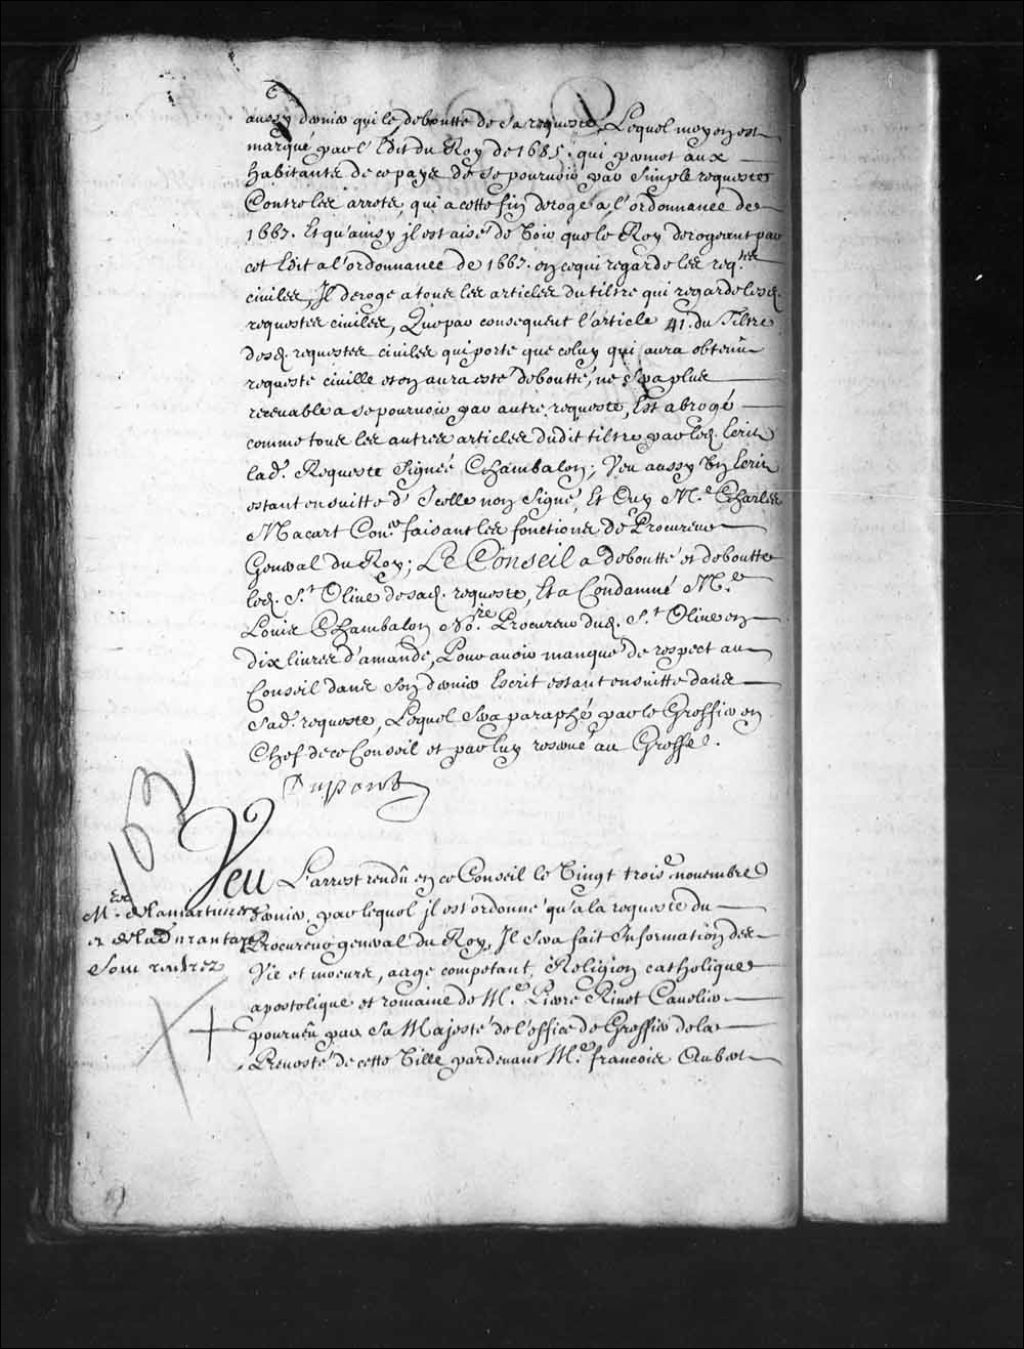 aussy dernier qui le deboutte de sa requeste, Lequel moyen est
marqué par l'Edit du Roy de 1685. qui permet aux
habitants de ce pays de se pourvoir par simple requestes
Contre les arrets, qui a cette fin deroge a l'ordonnance de
1667. Et qu'ainsy jl est aisé de voir que le Roy derogeant par
cet Edit a l'ordonnance de 1667. en ce qui regarde les req.tes
civiles, Il deroge a tous les articles du tiltre qui regarde lesd.
requestes civiles, Que par consequent l'article 41. du Tiltre
desd. requestes civiles qui porte que celuy qui aura obtenu
requeste civille et en aura esté deboutté, ne sera plus
recevable a se pourvoir par autre requeste, Est abrogé
comme tous les autres articles dudit tiltre par led. Ecrit
lad.e Requeste Signée Chambalon; Veu aussy Un Ecrit
estant ensuitte d'Icelle non Signé, Et Ouy M.e Charles
Macart Con.er faisant les fonctions de Procureur
General du Roy; LE Conseil a deboutté et deboutte
led. S.r Olive de sad. requeste, Et a Condamné M.e
Louis Chambalon No.re Procureur dud. S.r Olive en
dix livres d'amande, Pour avoir manqué de respect au
Conseil dans son dernier Escrit estant ensuitte dans
sad.e requeste, Lequel sera paraphé par le Greffier en
Chef de ce Conseil et par luy remué au Greffe.
Dupont
103
Veu L'arrest rendu en ce Conseil le Vingt trois.e novembre
M.rs de la martiniere
et de la Durantaye
Sont rentrez
dernier, par lequel jl est ordonné qu'a la requeste du
Procureur general du Roy, Il sera fait Information des
Vie et moeurs, aage competant, Religion catholique
apostolique et romaine de M.e Pierre Rivet Cavelier
pourveu par Sa Majesté de l'office de Greffier de la
Prevosté de cette Ville pardevant M.e francois Aubert